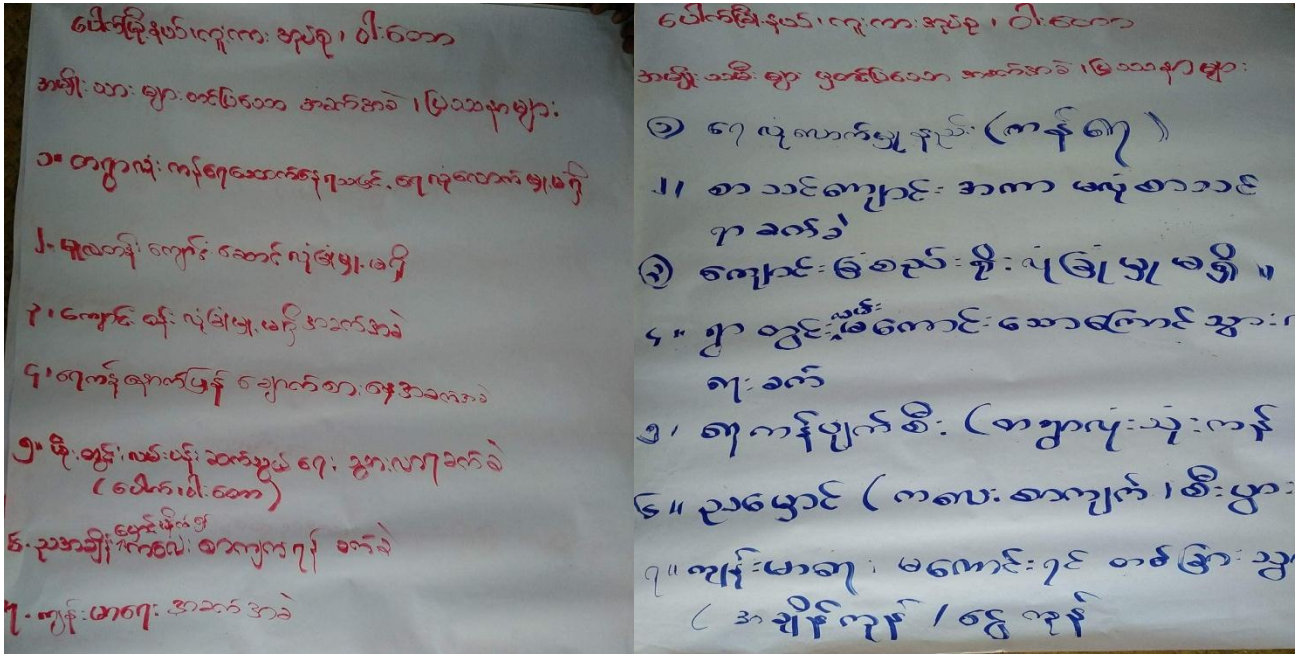 ပေါက်မြို့နယ်၊ ကူးကား အုပ်စု၊ ဝါးတော
အမျိုးသားများ တင်ပြသော အခက်အခဲ၊ ပြဿနာများ
၁။ တရွာလုံး ကန်ရေသောက်နေရသဖြင့်၊ ရေလုံလောက်မှုမရှိ
၂။ မူလတန်း ကျောင်းဆောင် လုံခြုံမှု မရှိ
၃၊ ကျောင်း ဝန်း လုံခြုံမှု မရှိ အခက်အခဲ
၄၊ ရေကန် နောက်ပြန် ခြောက်စားနေ အခက်အခဲ
၅။ မိုးတွင်း လမ်းပန်း ဆက်သွယ်ရေး သွားလာရခက်ခဲ
(ပေါက်၊ ဝါးတော)
၆. ညအချိန် မှောင်မိုက်၍ ကလေး စာကျက်ရန် ခက်ခဲ
၇. ကျန်းမာရေး အခက်အခဲ
ပေါက်မြို့နယ်၊ ကူးကား အုပ်စု၊ ဝါးတော
အမျိုးသမီးများ မှတင်ပြသော အခက်အခဲ၊ ပြဿနာများ
၁ ရေ လုံလောက်မှု နည်း (ကန်ရေ)
၂၊ စာသင်ကျောင်း အကာ မလုံ စာသင်
ရာ ခက်ခဲ
၃ ကျောင်း ခြံစည်းရိုး လုံခြုံမှု မရှိ။
၄။ ရွာ တွင်းလမ်း မကောင်းသောကြောင့် သွား
ရေး ခက်
၅၊ ရေကန်ပျက်စီး (တရွာလုံးသုံးကန်
၆။ ညမှောင် (ကလေး စာကျက်၊ စီးပွား
၇။ ကျန်းမာရေး မကောင်းရင် တစ်ခြားသွ
(အချိန်ကုန် / ငွေကုန်